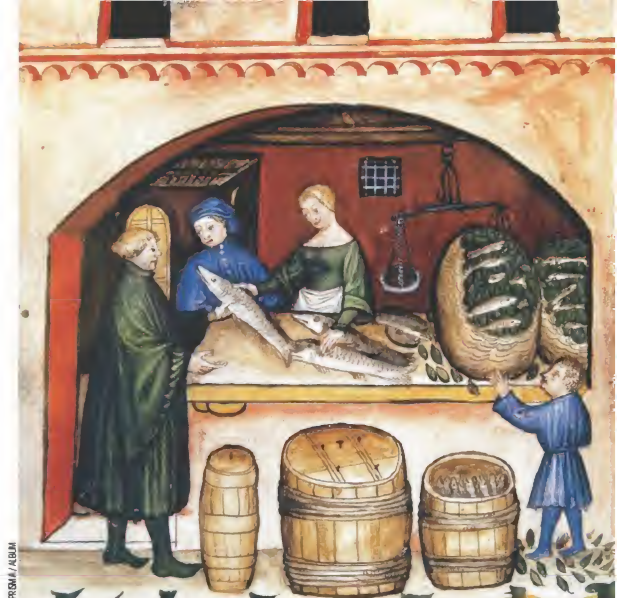 PRISMA / ALBUM